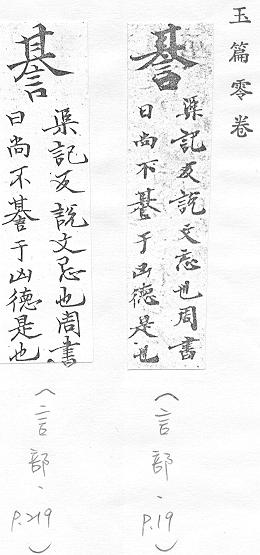 玉篇零卷
諅
渠記反說文忌也周書
曰尚不諅于凶德是也
(言部、
P.19)
諅
渠記反說文忌也周書
曰尚不諅于凶德是也
(言部、
P.219)